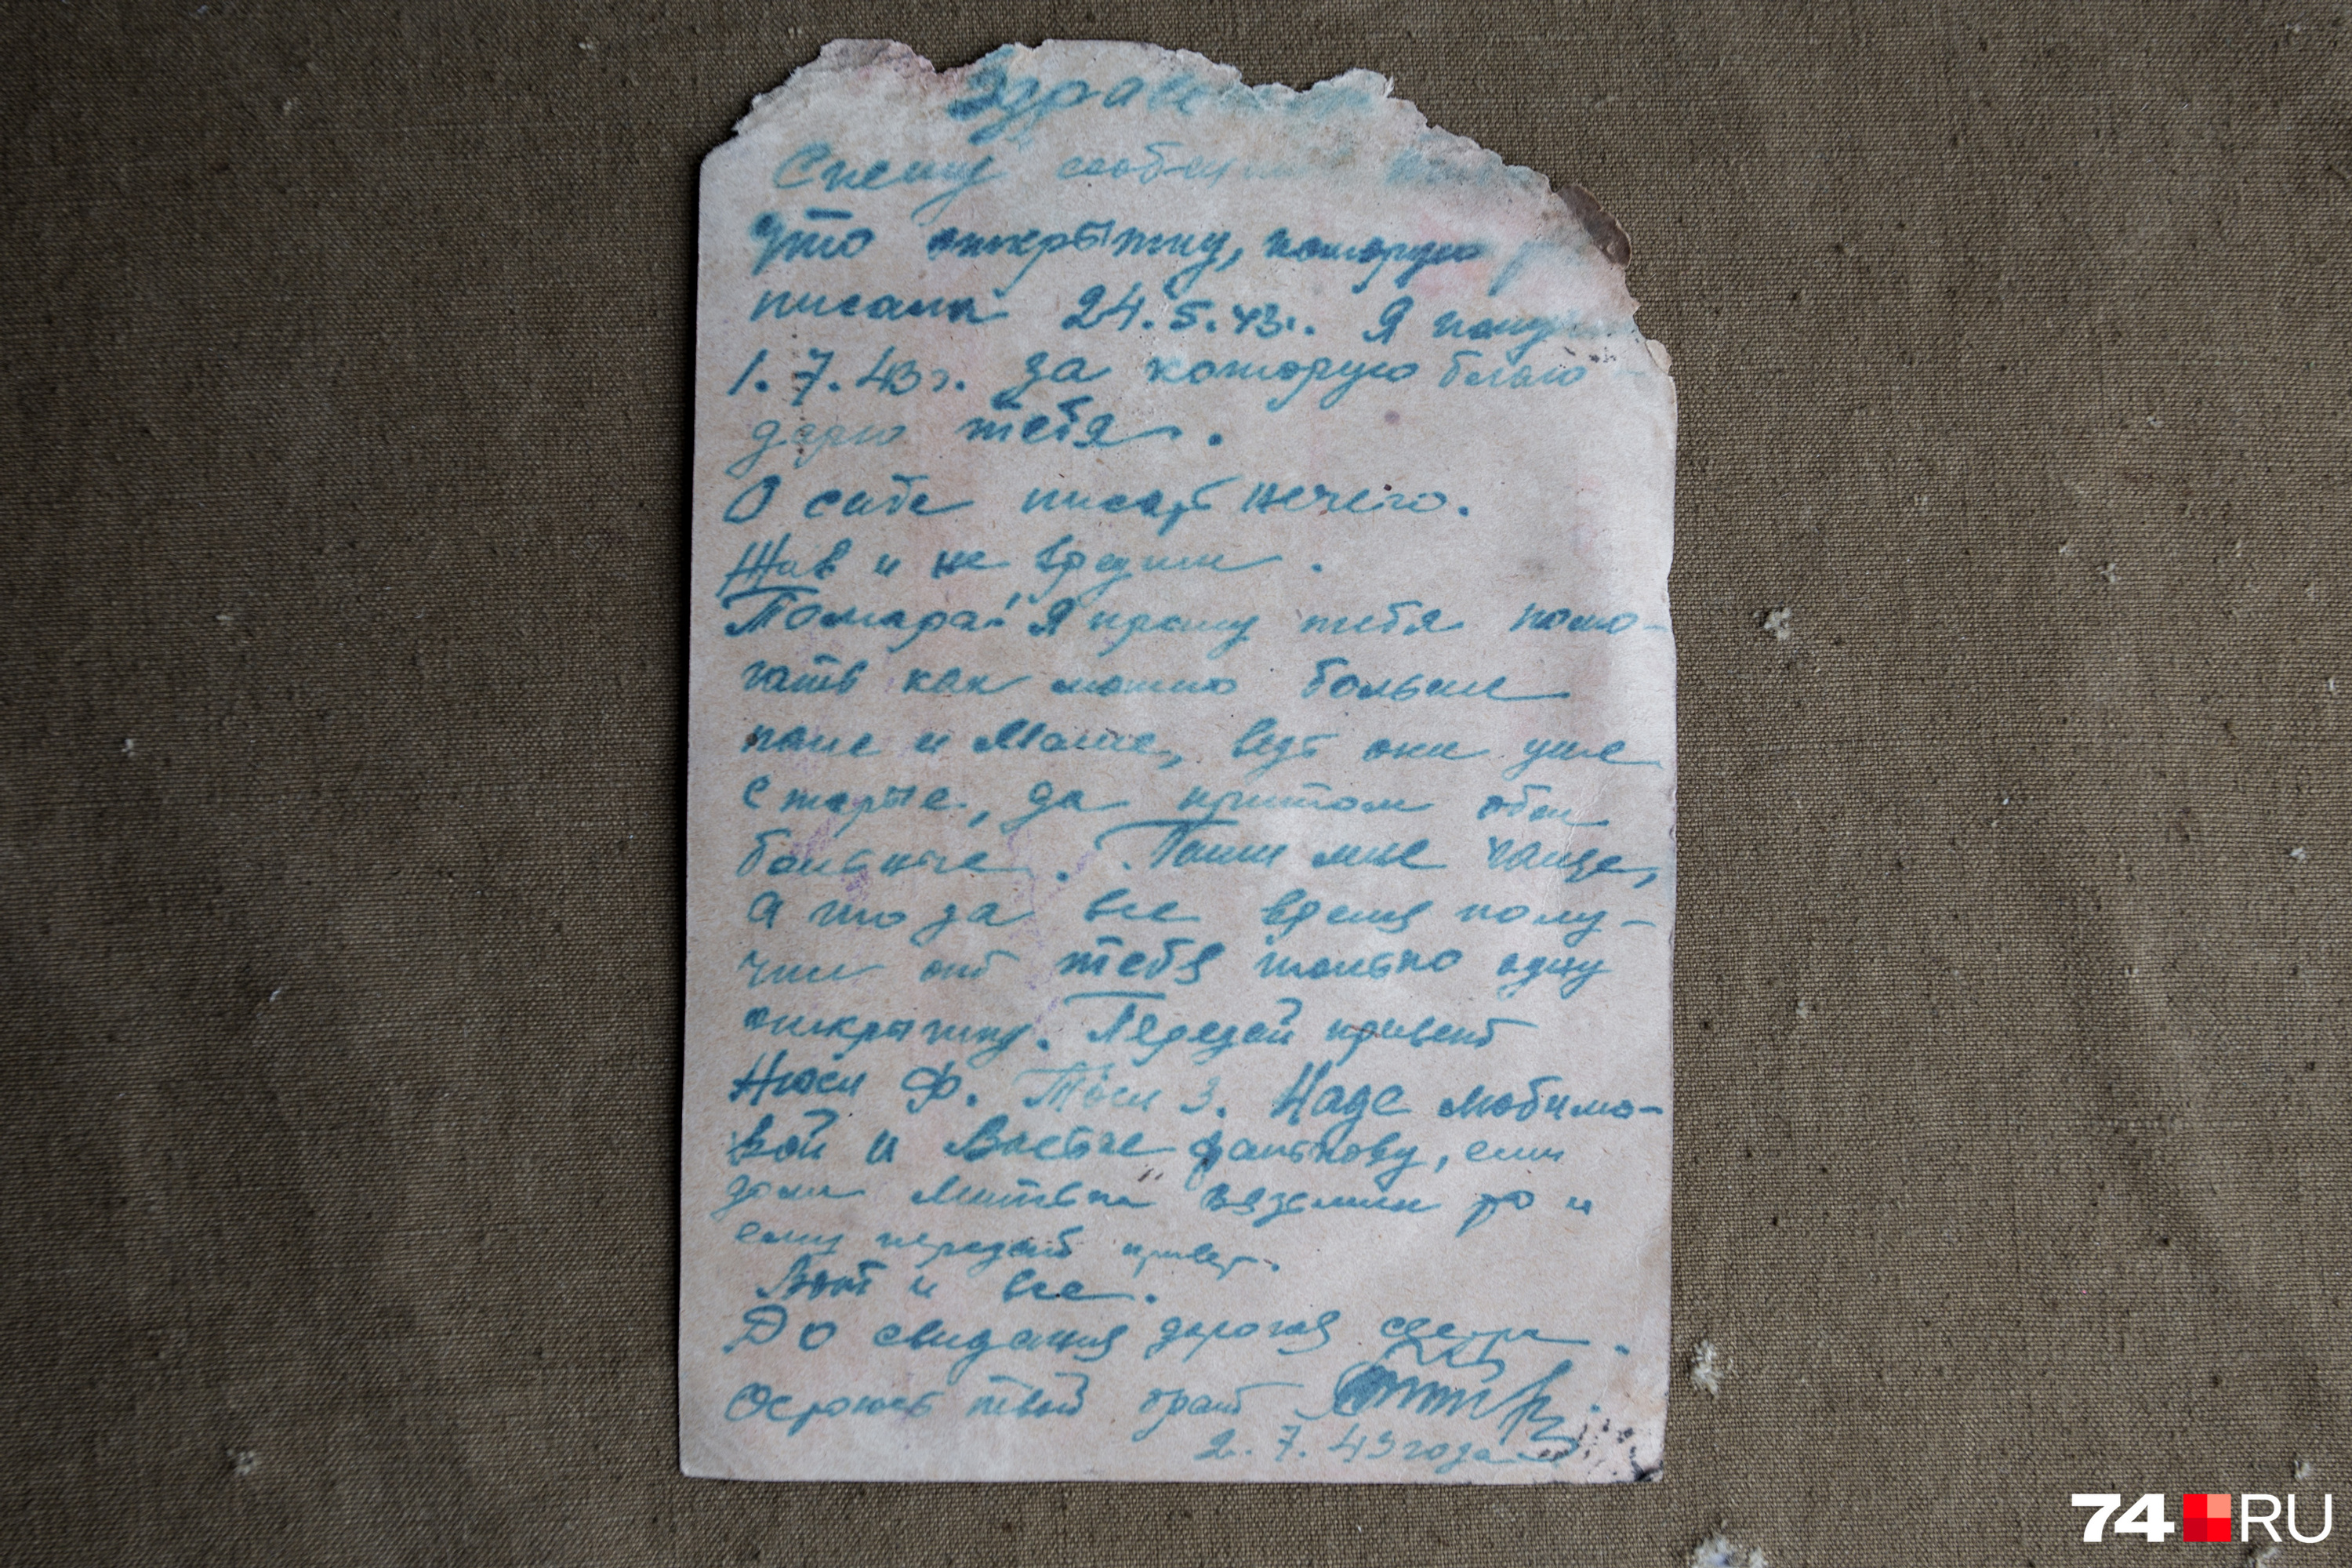 Здрав
Спешу сообщить
Что открытку, которую
писала 24.5.43г. Я полу
1.7.43г. за которую благо
дарю тебя.
О себе писать нечего.
Жив и не вредим.
Томара! Я прошу тебя помо-
гать как можно больше
папе и Маше, ведь они уже
старые, да притом обои
больные. Пиши мне чаще,
а то за все время полу-
чил от тебя только одну
открытку. Передай привет
Нюси Ф. Тоси З. Наде Любимо-
вой и Вастьке Фалькову, если
дома Митька то и
ему передай привет.
Вот и все.
До свидания дорогая сестра.
Остаюсь твой брат
2.7.43 года
74 RU